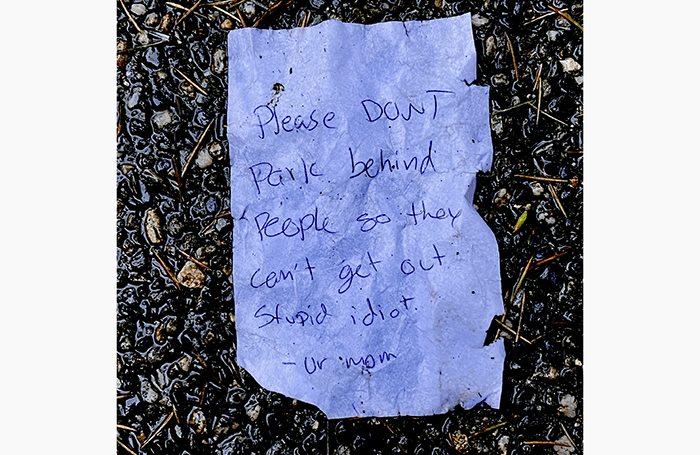 Please DONT
Park behind
People so they
can't get out.
Stupid idiot.
- ur mom